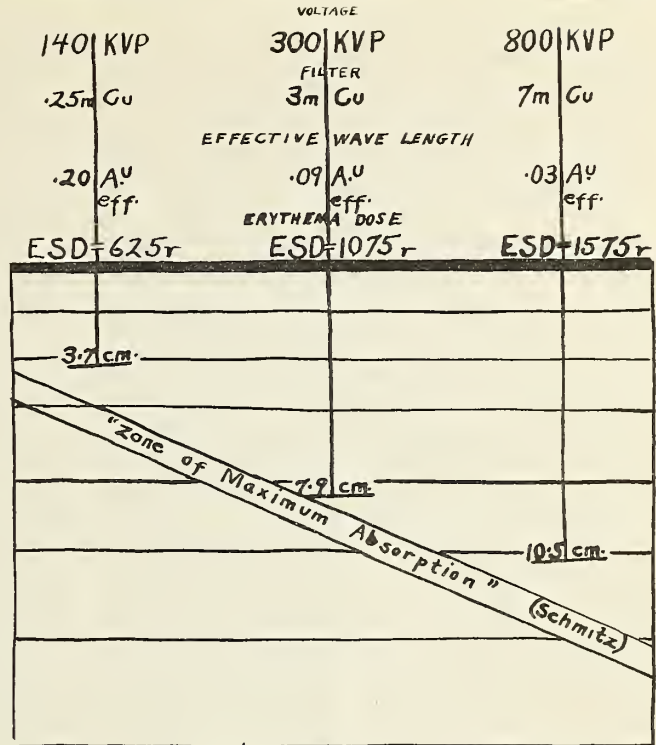 VOLTAGE
140 KVP 300 KVP 800 KVP
FILTER
.25m Cu 3m Cu 7m Cu
EFFECTIVE WAVE LENGTH
.20 A.U .09 A.U .03 A.U
eff. eff. eff.
ERYTHEMA DOSE
ESD=625r ESD=1075r ESD=1575r
3.7 cm.
7.9 cm.
10.5 cm.
"Zone of Maximum Absorption" (Schmitz)